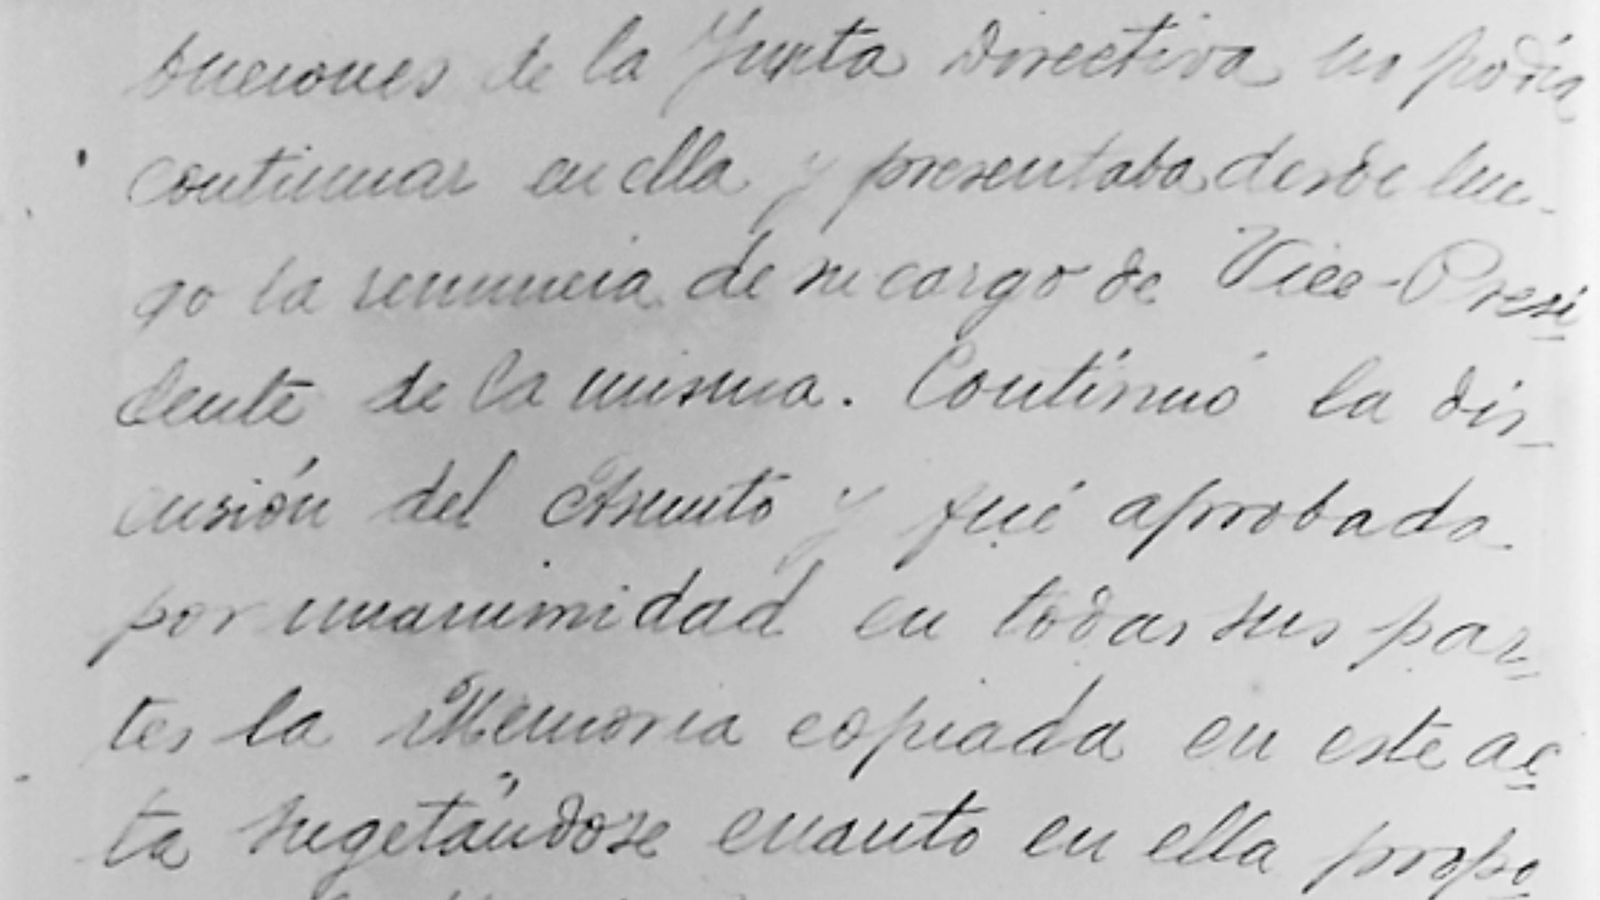 buciones de la Junta Directiva no podía
continuar en ella y presentaba desde lue-
go la renuncia de su cargo de Vice-Presi
dente de la misma. Continuó la dis-
cusión del Asunto y fué aprobada
por unanimidad en todas sus par-
tes la Memoria copiada en este ac
ta sugetándose cuanto en ella propo